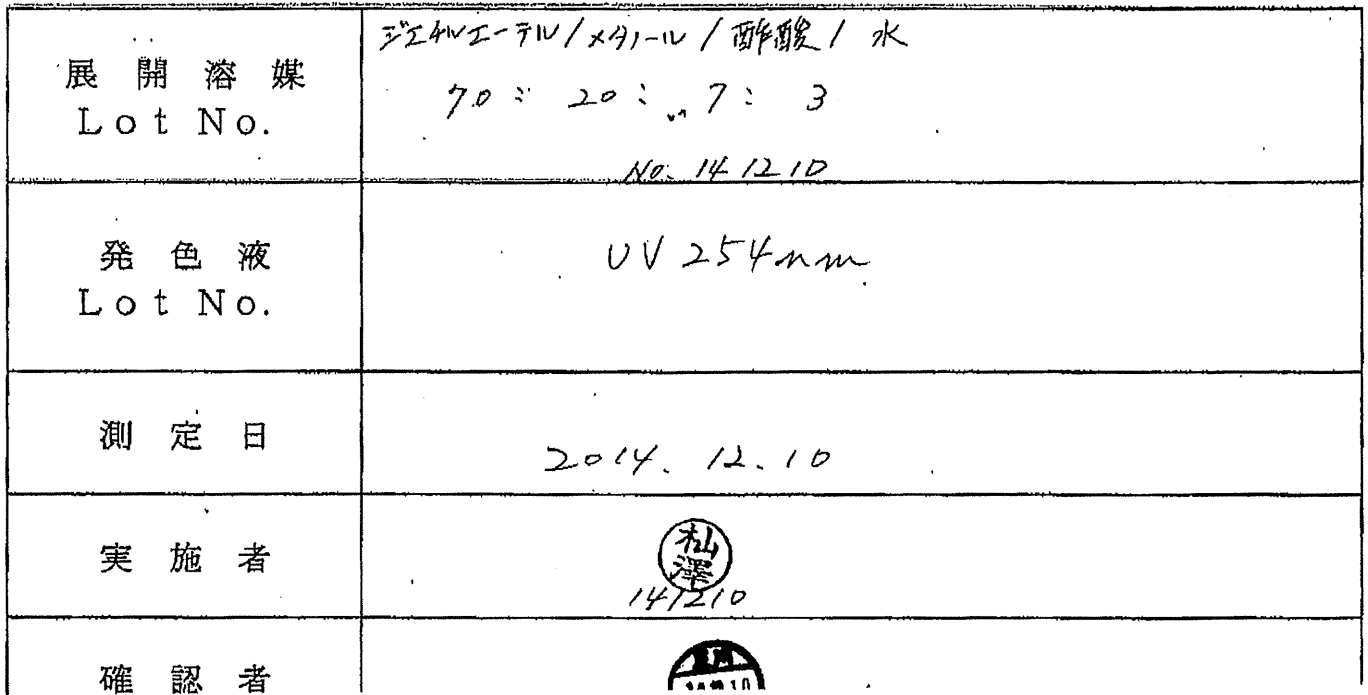 展開溶媒
Lot No.
ジエチルエーテル/メタノール/酢酸/水
70: 20: 7: 3
No. 141210
発色液
Lot No.
UV 254nm
測定日
2014. 12. 10
実施者
杣澤
141210
確認者